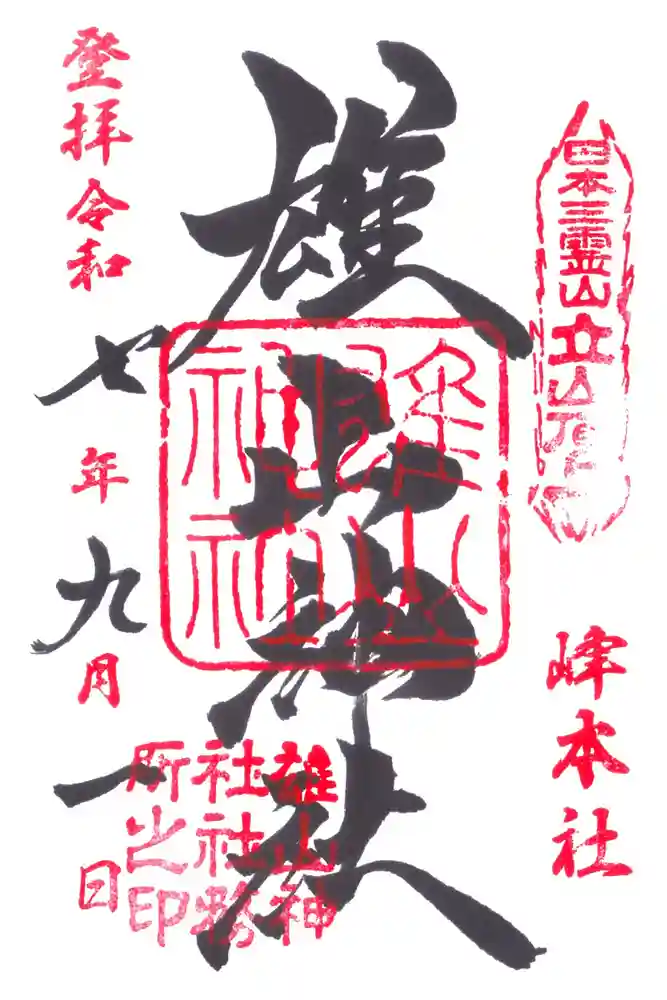 日本三霊山立山頂上
峰本社
雄山神社
雄山神社
雄山神
社社務
所之印
登拝令和七年九月一日